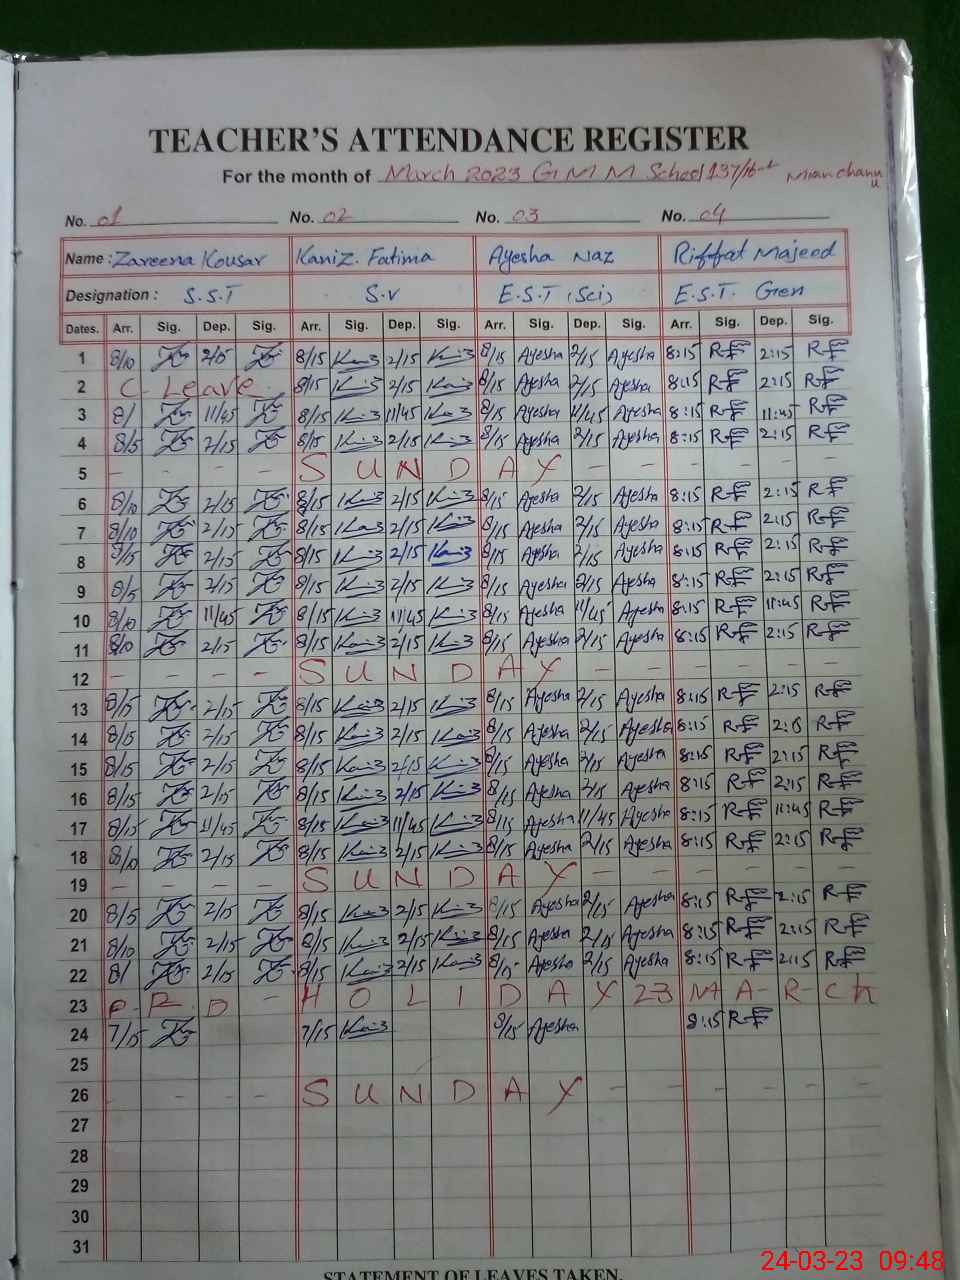 TEACHER'S ATTENDANCE REGISTER
For the month of March 2023 G M M School 137/16-L Mianchannu
No. 01 No. 02 No. 03 No. 04
Name : Zareena Kousar Kaniz Fatima Ayesha Naz Riffat Majeed
Designation : S.S.T S.V E.S.T (Sci) E.S.T. Gen
Dates. Arr. Sig. Dep. Sig. Arr. Sig. Dep. Sig. Arr. Sig. Dep. Sig. Arr. Sig. Dep. Sig.
1 8/10 2/15 8/15 2/15 8/15 Ayesha 2/15 Ayesha 8:15 2:15
2 C- Leave 8/15 2/15 8/15 Ayesha 2/15 Ayesha 8:15 2:15
3 8/ 11/45 8/15 11/45 8/15 Ayesha 11/45 Ayesha 8:15 11:45
4 8/5 2/15 8/15 2/15 8/15 Ayesha 2/15 Ayesha 8:15 2:15
5 - - - - S U N D A Y - - - - - -
6 8/10 2/15 8/15 2/15 8/15 Ayesha 2/15 Ayesha 8:15 2:15
7 8/10 2/15 8/15 2/15 8/15 Ayesha 2/15 Ayesha 8:15 2:15
8 2/15 8/15 2/15 8/15 Ayesha 2/15 Ayesha 8:15 2:15
9 8/5 2/15 8/15 2/15 8/15 Ayesha 2/15 Ayesha 8:15 2:15
10 8/10 11/45 8/15 11/45 8/15 Ayesha 11/45 Ayesha 8:15 11:45
11 8/10 2/15 8/15 2/15 8/15 Ayesha 2/15 Ayesha 8:15 2:15
12 - - - - S U N D A Y - - - - - -
13 8/5 2/15 8/15 2/15 8/15 Ayesha 2/15 Ayesha 8:15 2:15
14 8/5 2/15 8/15 2/15 8/15 Ayesha 2/15 Ayesha 8:15 2:15
15 8/15 2/15 8/15 2/15 8/15 Ayesha 2/15 Ayesha 8:15 2:15
16 8/15 2/15 8/15 2/15 8/15 Ayesha 2/15 Ayesha 8:15 2:15
17 8/15 11/45 8/15 11/45 8/15 Ayesha 11/45 Ayesha 8:15 11:45
18 8/10 2/15 8/15 2/15 8/15 Ayesha 2/15 Ayesha 8:15 2:15
19 - - - - S U N D A Y - - - - - -
20 8/5 2/15 8/15 2/15 8/15 Ayesha 2/15 Ayesha 8:15 2:15
21 8/10 2/15 8/15 2/15 8/15 Ayesha 2/15 Ayesha 8:15 2:15
22 8/ 2/15 8/15 2/15 8/15 Ayesha 2/15 Ayesha 8:15 2:15
23 P R D - H O L I D A Y 23 M A R C H
24 7/15 7/15 8/15 Ayesha 8:15
25
26 - - - - S U N D A Y - - - - - -
27
28
29
30
31
STATEMENT OF LEAVES TAKEN.
24-03-23 09:48